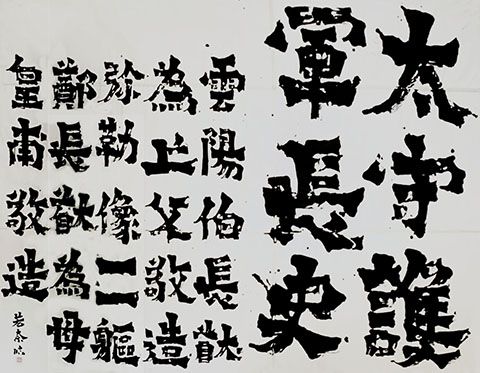 太守護
軍長史
雲陽伯長猷
為亡父敬造
弥勒像二軀
鄭長猷為母
皇甫敬造